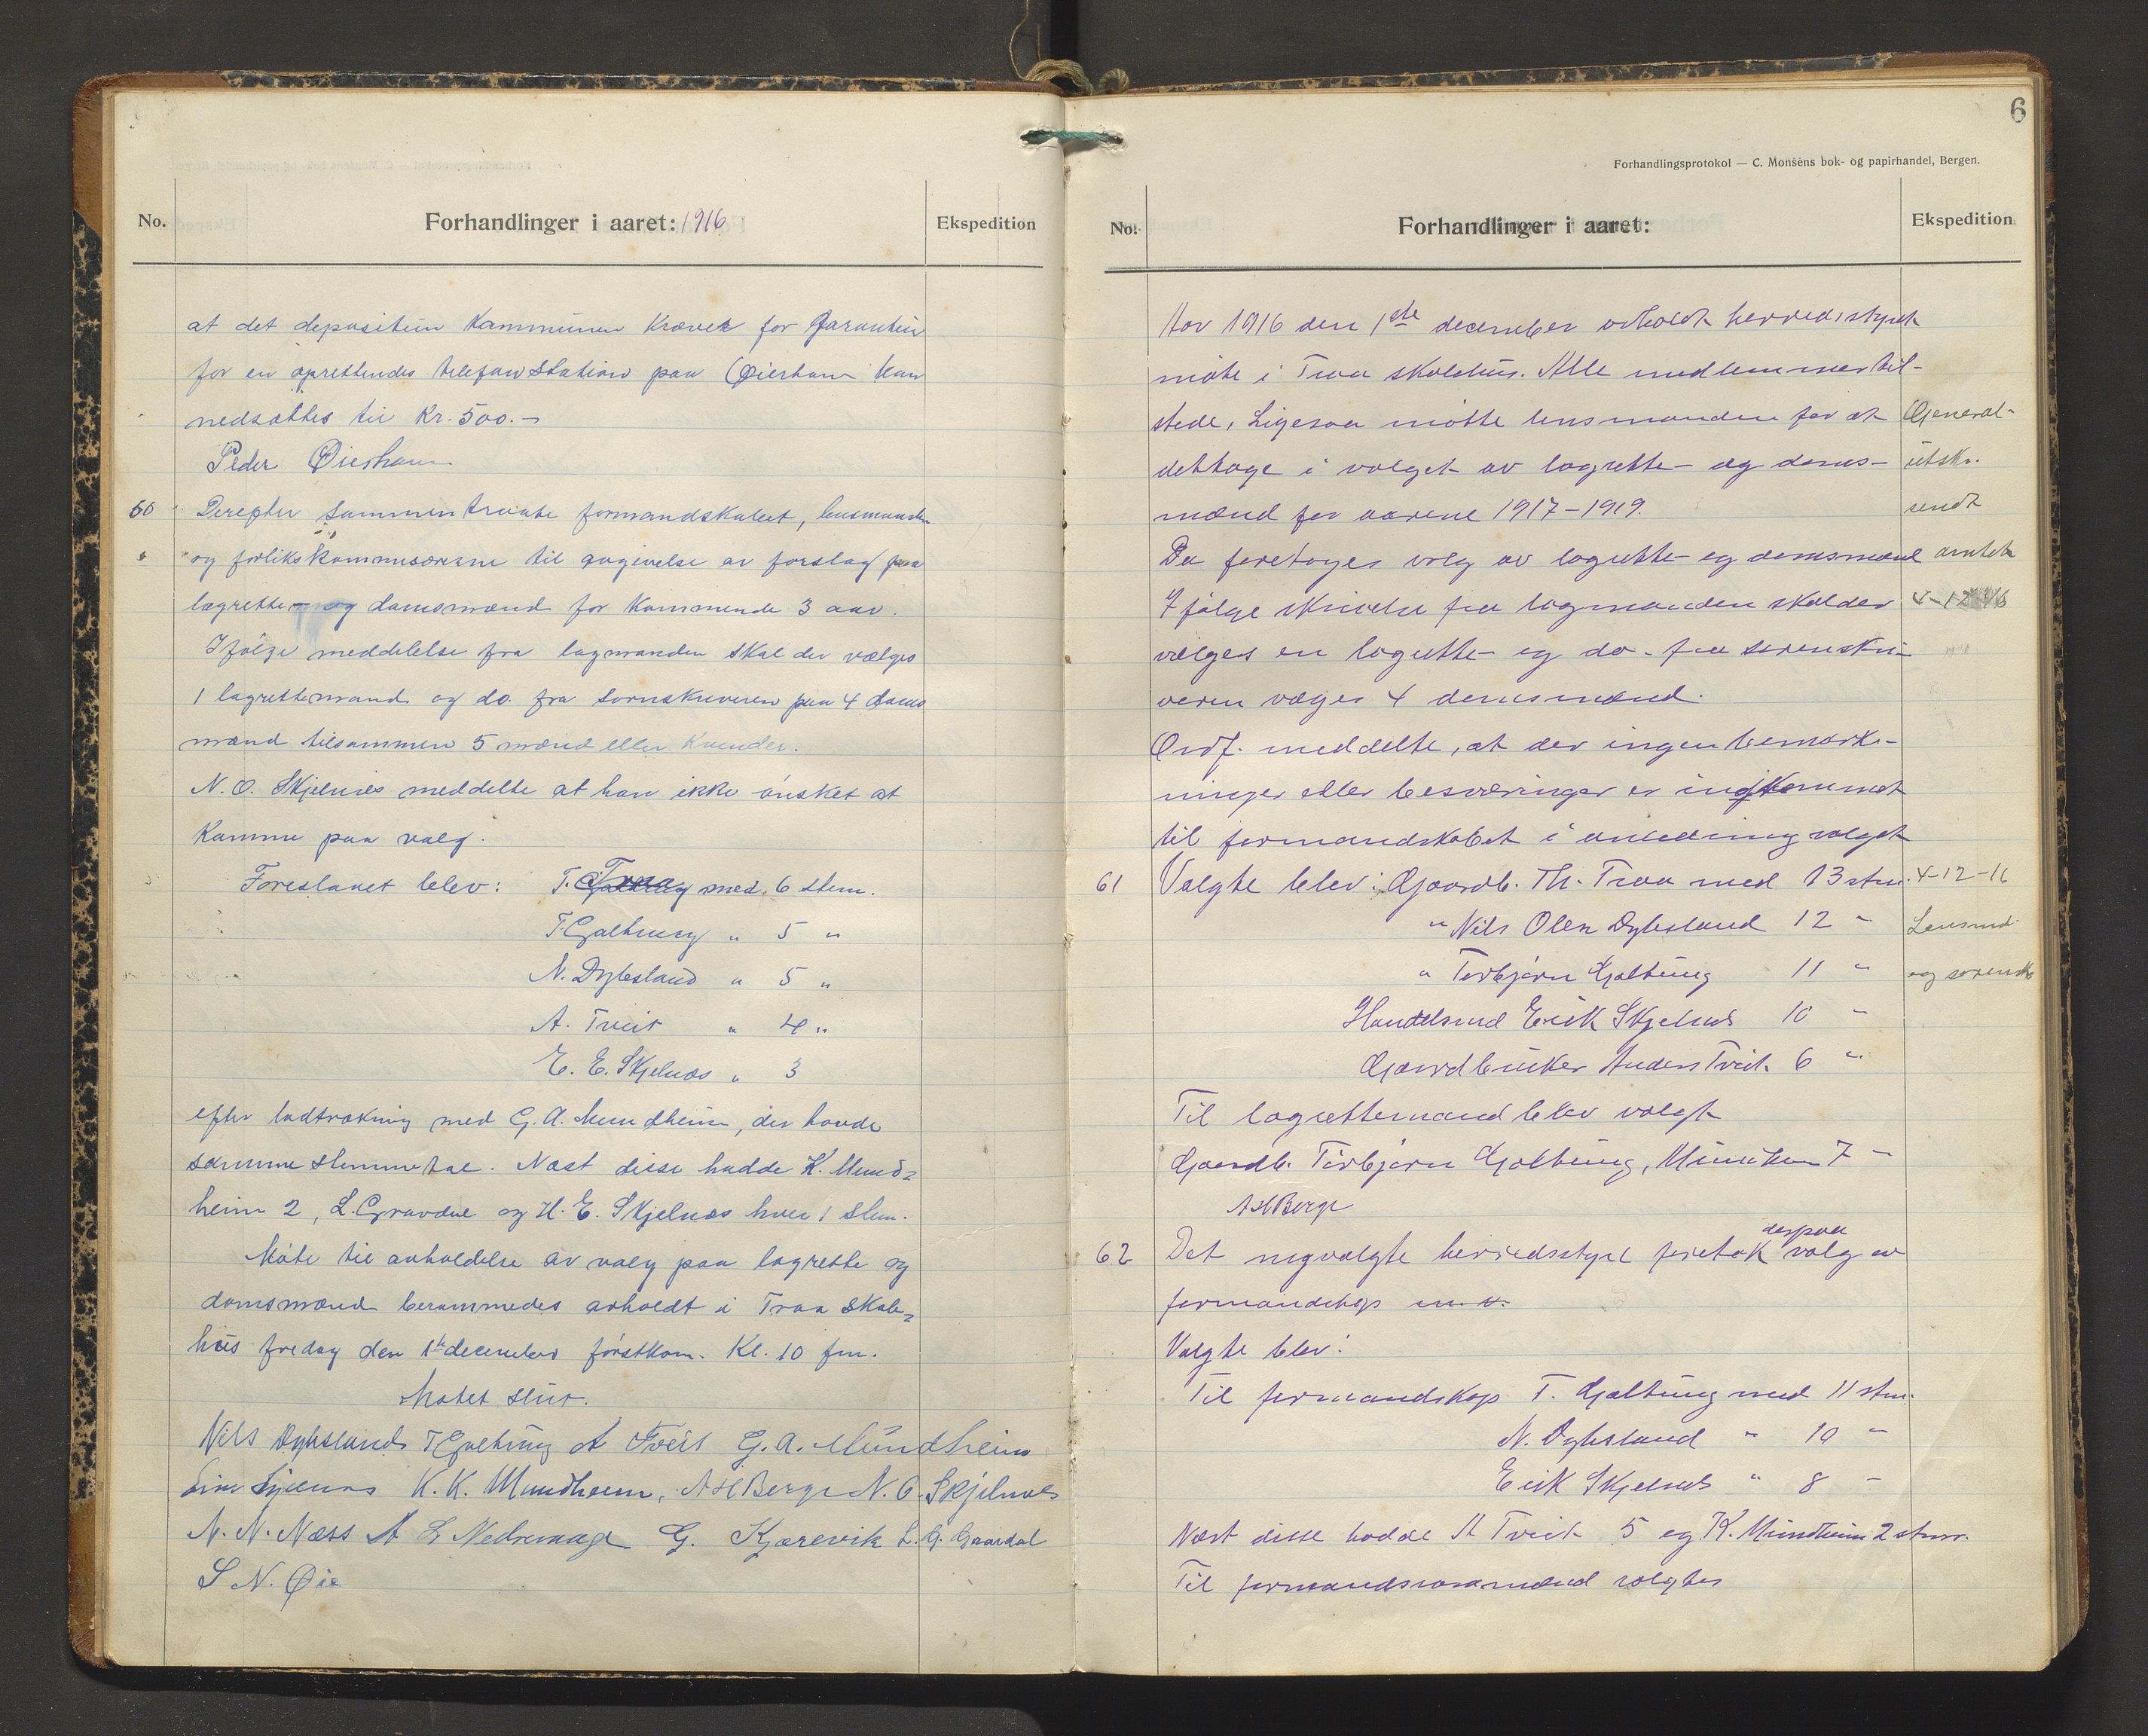 No. Forhandlinger i aaret: 1916 Ekspedition
at det depositum kommunen kræver for garantin
for en oprettendes telefon station paa Øierhavn kan
nedsættes til Kr. 500.-
Peder Øierhavn
60 Derefter sammentraate formandskabet, lensmanden
og forlikskommisærerne til avgivelse av forslag paa
lagrette- og domsmænd for kommende 3 aar.
Ifølge meddelelse fra lagmanden skal der vælges
1 lagrettemand og do. fra sornskriveren paa 4 doms
mænd tilsammen 5 mænd eller kvinder.
N. O. Skjelnes meddelte at han ikke ønsket at
komme paa valg.
Foreslaaet blev: T. Traa med 6 stem.
T Galtung " 5 "
N. Dybsland " 5 "
A. Tveit " 4 "
E. E. Skjelnæs " 3
efter lodtrækning med G. A. Mundheim, der havde
samme stemmetal. Næst disse hadde K. Mund=
heim 2, L. Gravdal og H. E. Skjelnæs hver 1 stem.
Møte til avholdelse av valg paa lagrette og
domsmænd berammedes avholdt i Traa skole=
hus fredag den 1ste december førstkom. Kl. 10 fm.
Møtet slut.
Nils Dybsland T Galtung A Tveit G. A. Mundheim
K. K. Mundheim, A H Berge N. O. Skjelnæs
N. N. Næss A L Nedrevaage G. Kjærevik L. G. Gaardal
S N. Øie
6
Forhandlingsprotokol — C. Monsens bok- og papirhandel, Bergen.
No. Forhandlinger i aaret: Ekspedition
Aar 1916 den 1ste december avholdt herredsstyret
møte i Traa skolehus. Alle medlemmer til-
stede, Ligesaa møtte lensmanden for at
deltage i valget av lagrette- og doms-
mænd for aarene 1917-1919.
General-
utskr.
sendt
amtet
4-12 16
Da foretoges valg av lagrette- og domsmænd
Ifølge skrivelse fra lagmanden skal der
vælges en lagrette- og do. fra sorenskri-
veren væges 4 domsmænd.
Ordf. meddelte, at der ingen bemærk-
ninger eller besværinger er indkommet
til formandskabet i anledning valget
61 Valgte blev: Gaardb. Th. Traa med 13 stm. 4-12-16
" Nils Olsn Dybsland 12 " Lensmd.
" Torbjørn Galtung 11 " og sorensk
Handelsmd Erik Skjelnæs 10 "
Gaardbruker Anders Tveit 6 "
Til lagrettemand blev valgt
Gaardb. Torbjørn Galtung, 7 "
A H Berge
62 Det nyvalgte herredsstyre foretok derpaa valg av
formandskap m. v.
Valgte blev:
Til formandskap T. Galtung med 11 stm.
N. Dybsland " 10 "
Erik Skjelnæs " 8 "
Næst disse hadde A Tveit 5 og K. Mundheim 2 stmr.
Til formandsvaramænd valgtes